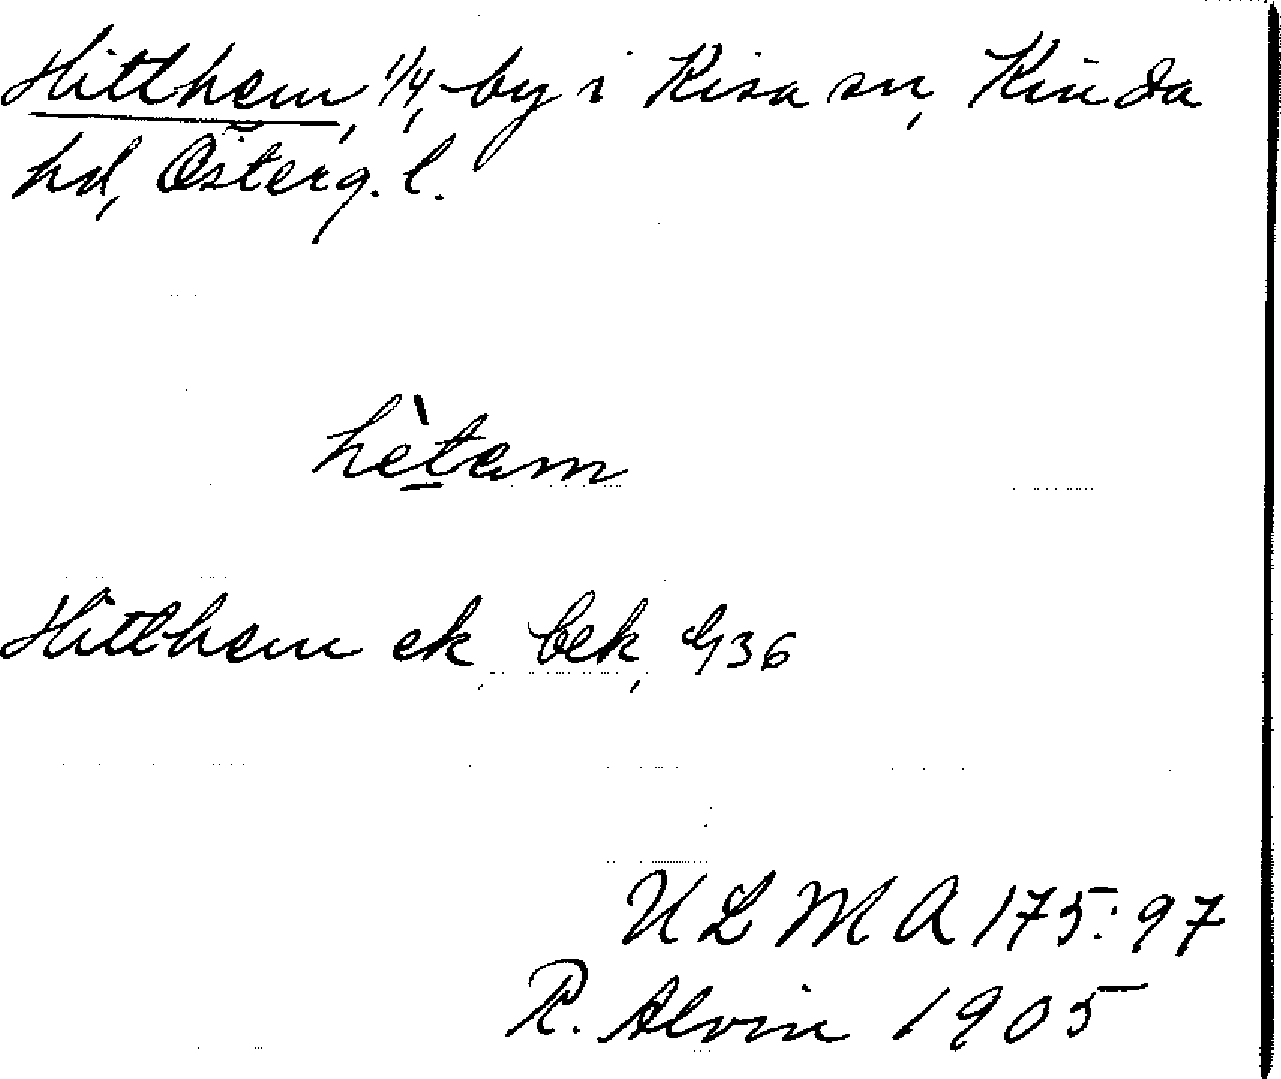 Hitthem, 1/4, by i Kisa sn, Kinda
hd, Österg. l.
hètam
Hitthem ek, bek, G36
ULMA 175:97
R. Alvin 1905